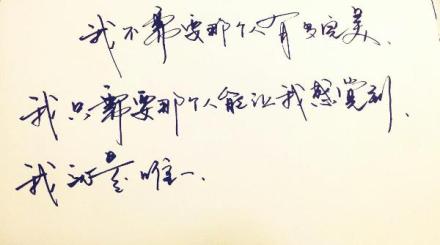 我不需要那个人有多完美.
我只需要那个人能让我感觉到.
我 是唯一.